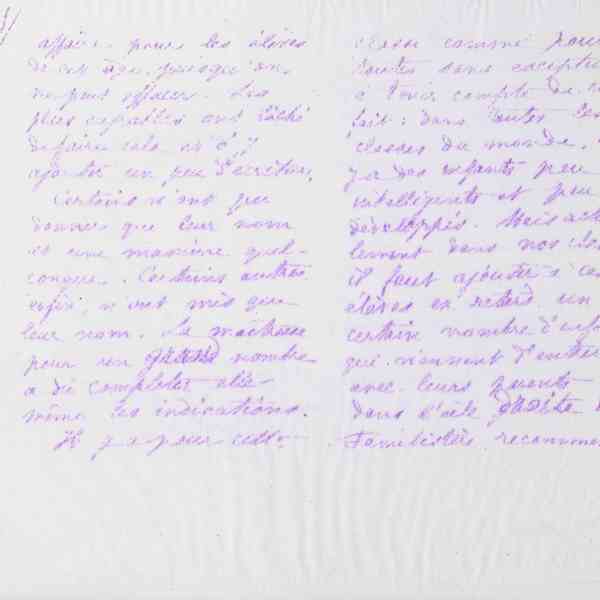 affaire pour les élèves
de cet âge, puisqu'on
ne peut effacer. Les
plus capables ont tâché
de faire cela et d'y
ajouter un peu d'écriture.
Certains n'ont pu
donner que leur nom
et une manière quel-
conque. Certains autres
enfin, n'ont mis que
leur nom. La maîtresse
pour un grand nombre
a dû compléter elle-
même les indications.
Il y a pour cette
classe comme pour
toutes sans excepti
à tenir compte de
fait : dans toutes les
classes du monde,
y a des enfants peu
intelligents et peu
développés. Mais act
lement dans nos cla
il faut ajouter à ces
élèves en retard un
certain nombre d'enf
qui viennent d'entrer
avec leurs parents
dans l'aile droite
Familistère recomme